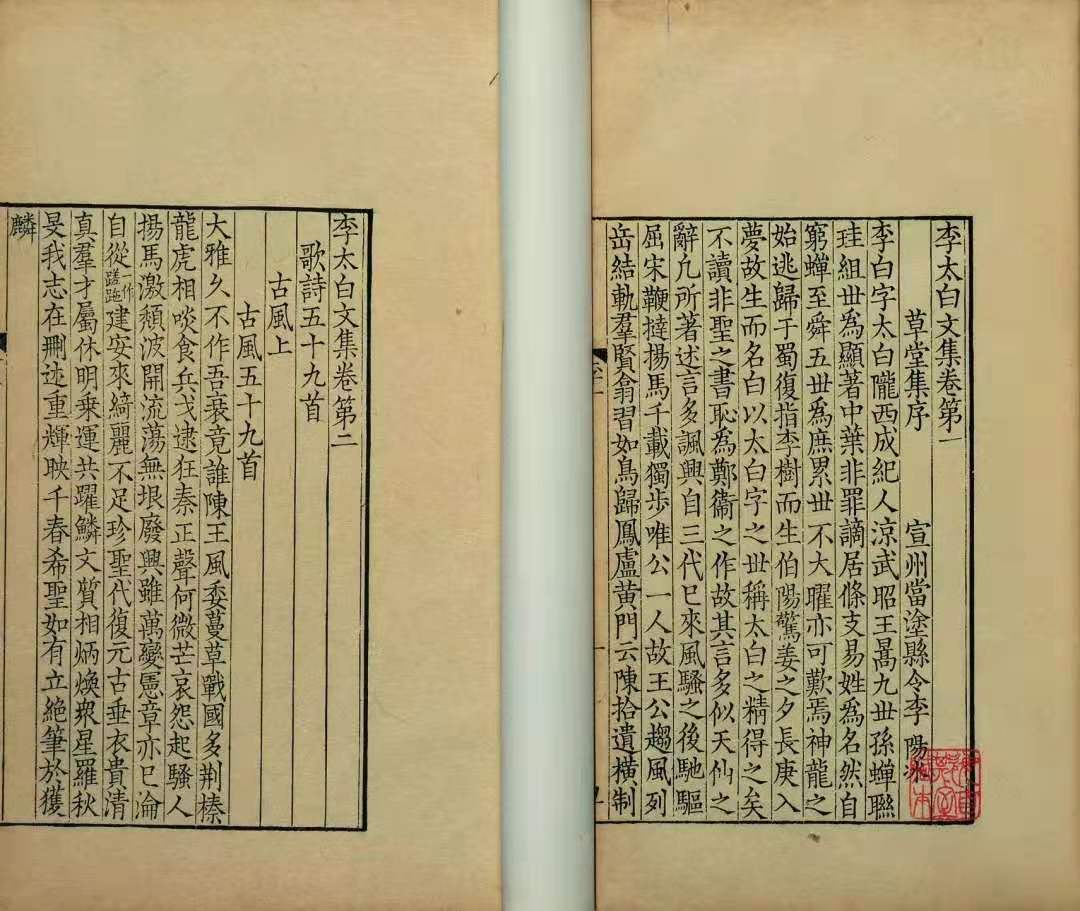 李太白文集卷第一
草堂集序　宣州當塗縣令李　陽冰
李白字太白隴西成紀人涼武昭王暠九世孫蟬聮
珪組世爲顯著中葉非罪謫居條支易姓爲名然自
窮蟬至舜五世爲庶累世不大曜亦可歎焉神龍之
始逃歸于蜀復指李樹而生伯陽驚姜之夕長庚入
夢故生而名白以太白字之世稱太白之精得之矣
不讀非聖之書恥爲鄭衞之作故其言多似天仙之
辭凡所著述言多諷興自三代已來風騷之後馳驅
屈宋鞭撻揚馬千載獨步唯公一人故王公趨風列
岳結軌羣賢翕習如鳥歸鳳盧黃門云陳拾遺橫制
李太白文集卷第二
歌詩五十九首
古風上
古風五十九首
大雅久不作吾衰竟誰陳王風委蔓草戰國多荆榛
龍虎相啖食兵戈逮狂秦正聲何微芒哀怨起騷人
揚馬激頹波開流蕩無垠廢興雖萬變憲章亦已淪
自從一作蹉跎建安來綺麗不足珍聖代復元古垂衣貴清
真羣才屬休明乗運共躍鱗文質相炳煥衆星羅秋
旻我志在刪述重輝映千春希聖如有立絶筆於獲
麟